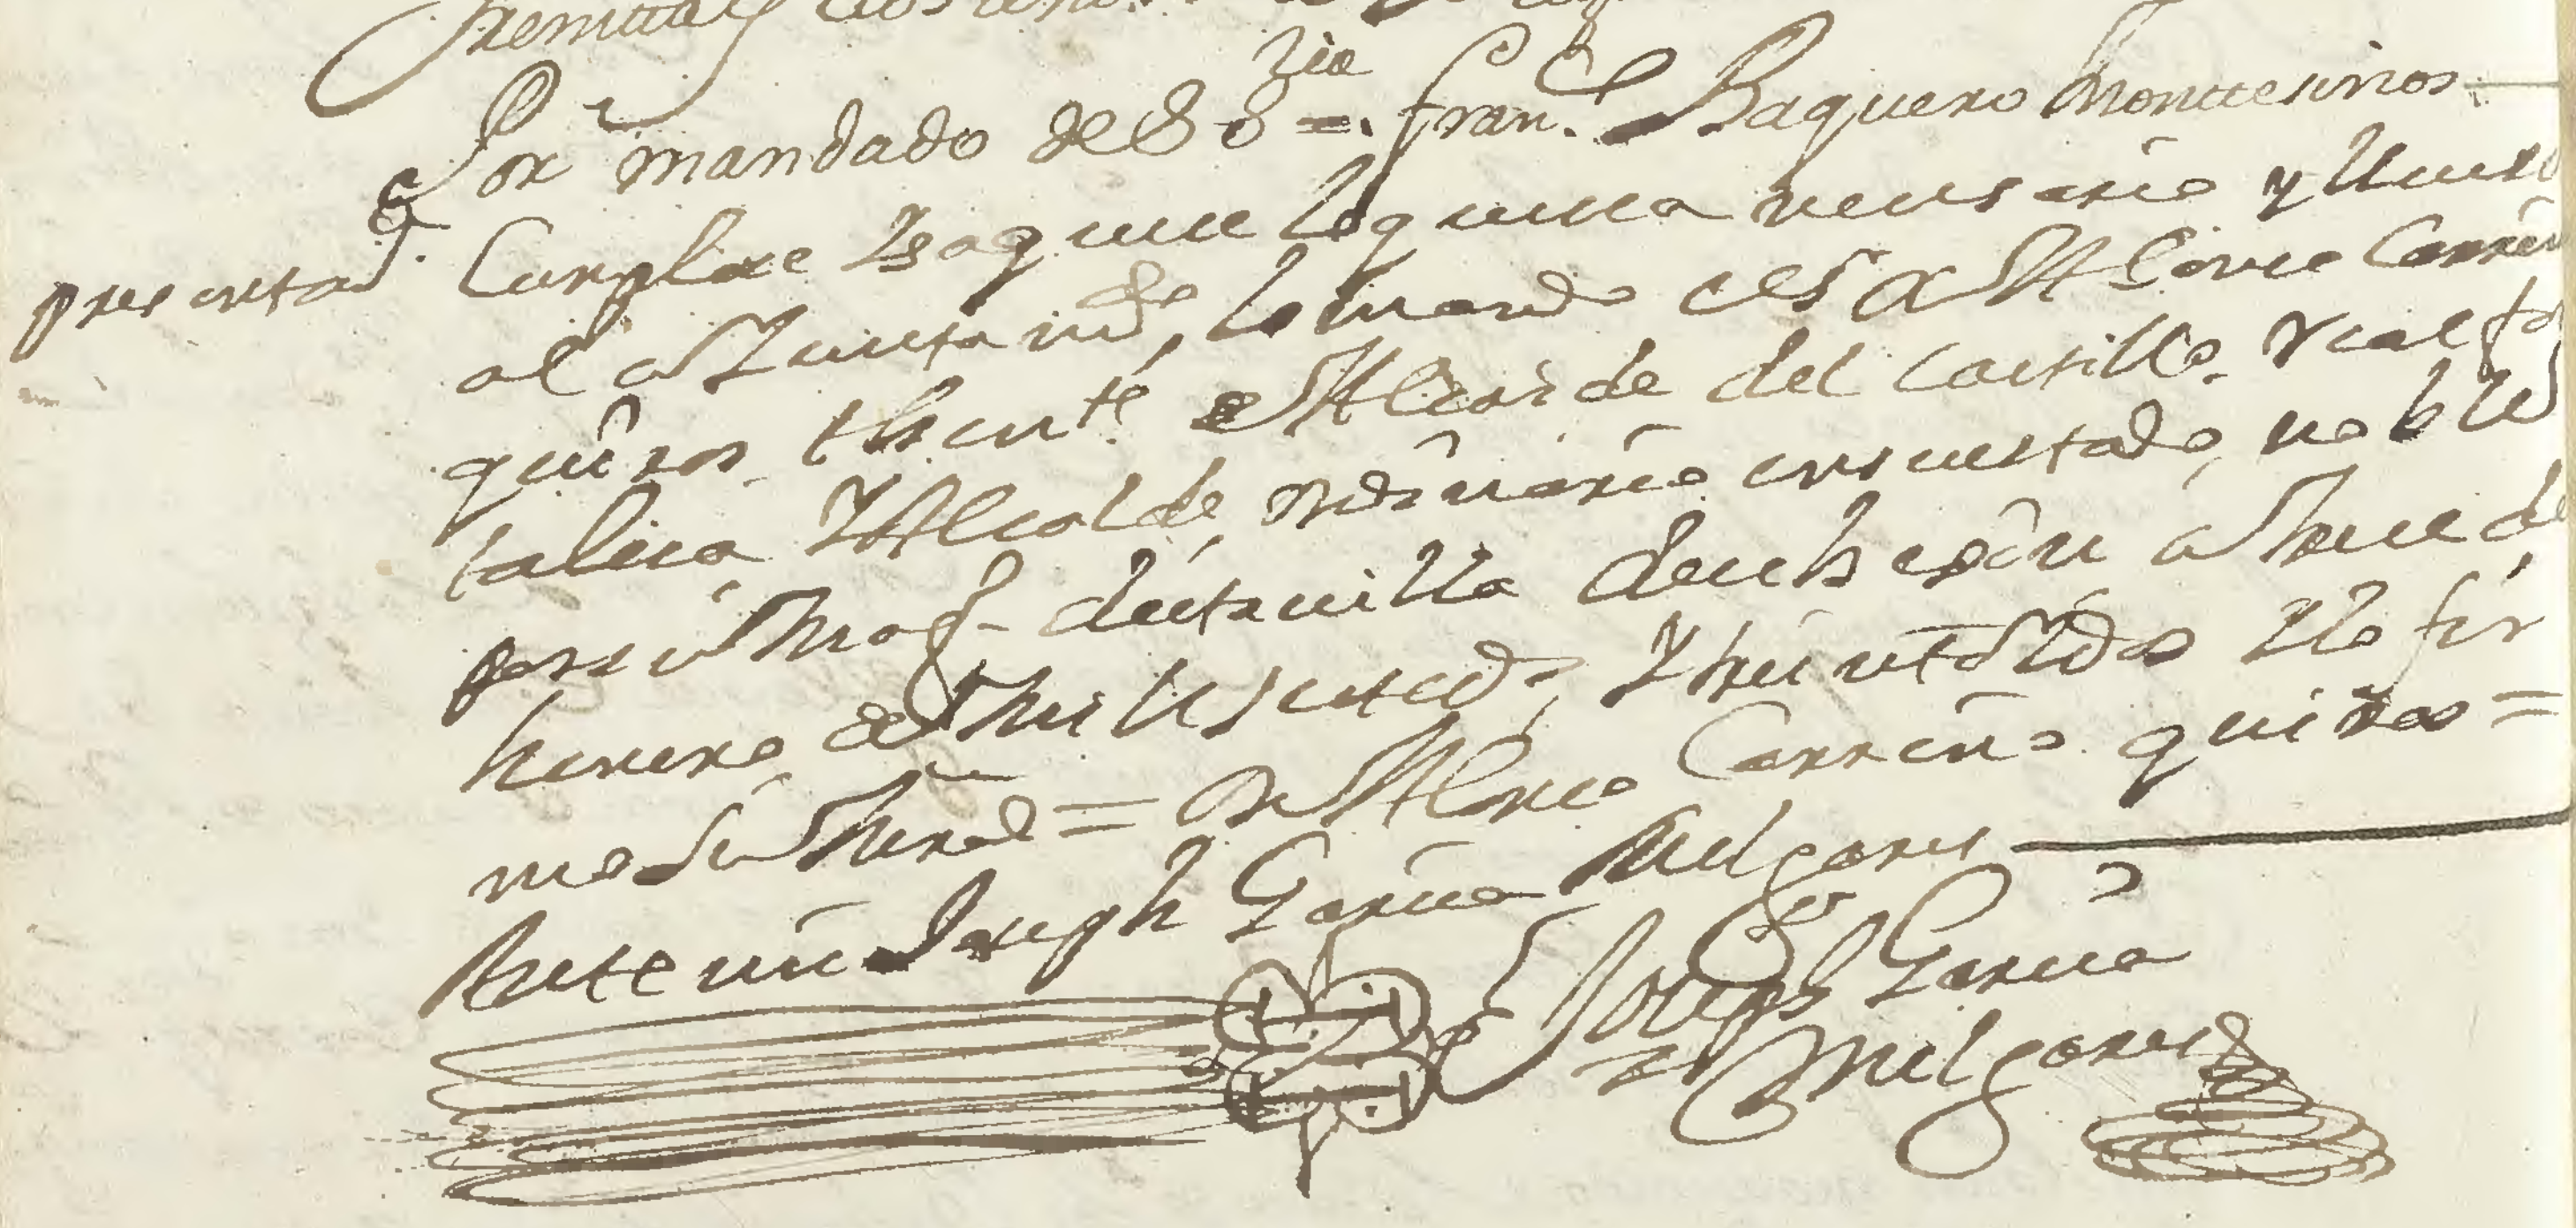 Por mandado de S S.ria = fran.co Baquero Montesinos
presentad.
Cumplase Isaquese los que sea necesario y llueue
al aiuntamd.to, lo mando el S.r D.n Alonso Carreñ
quiros thent.e Alcaide del Castillo, real fo
taleça, I Alcalde, ordinario en su estado, noble
por su Mag.d destauilla de
henero de mill I setecd.s, I treinta I dos Ilo fir
mo su Merd = D.n Alonso Carreño quiros =
Ante mi Joseph Garcia Melgares
Joseph Garcia
Melgares